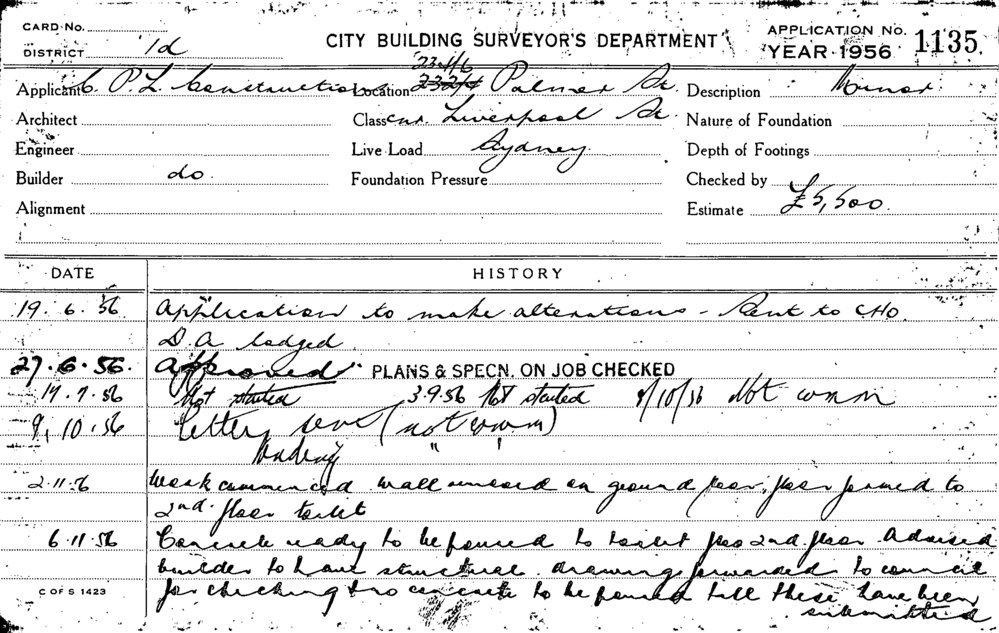 CARD No.
DISTRICT 1d
CITY BUILDING SURVEYOR'S DEPARTMENT
APPLICATION No. 1135
YEAR 1956
234/6
Applicant C. P. L. Construction Location Palmer St. Description Minor.
Architect Class cnr. Liverpool St. Nature of Foundation
Engineer Live Load Sydney. Depth of Footings
Builder do. Foundation Pressure Checked by
Alignment Estimate £5,500.
DATE HISTORY
19.6.56 Application to make alterations - Sent to CHO.
D.A lodged.
27.6.56. Approved PLANS & SPECN. ON JOB CHECKED
Not started 3.9.56 Not started 8/10/56 Not comm
9.10.56 letter sent (not comm)
" "
2.11.56 Work commenced wall on ground floor, floor formed to
2nd. floor toilet
6.11.56 Concrete ready to be poured to toilet 2nd. floor Advised
builder to have structural drawing forwarded to council
for checking & no concrete to be poured till these have been
submitted
C OF S 1423